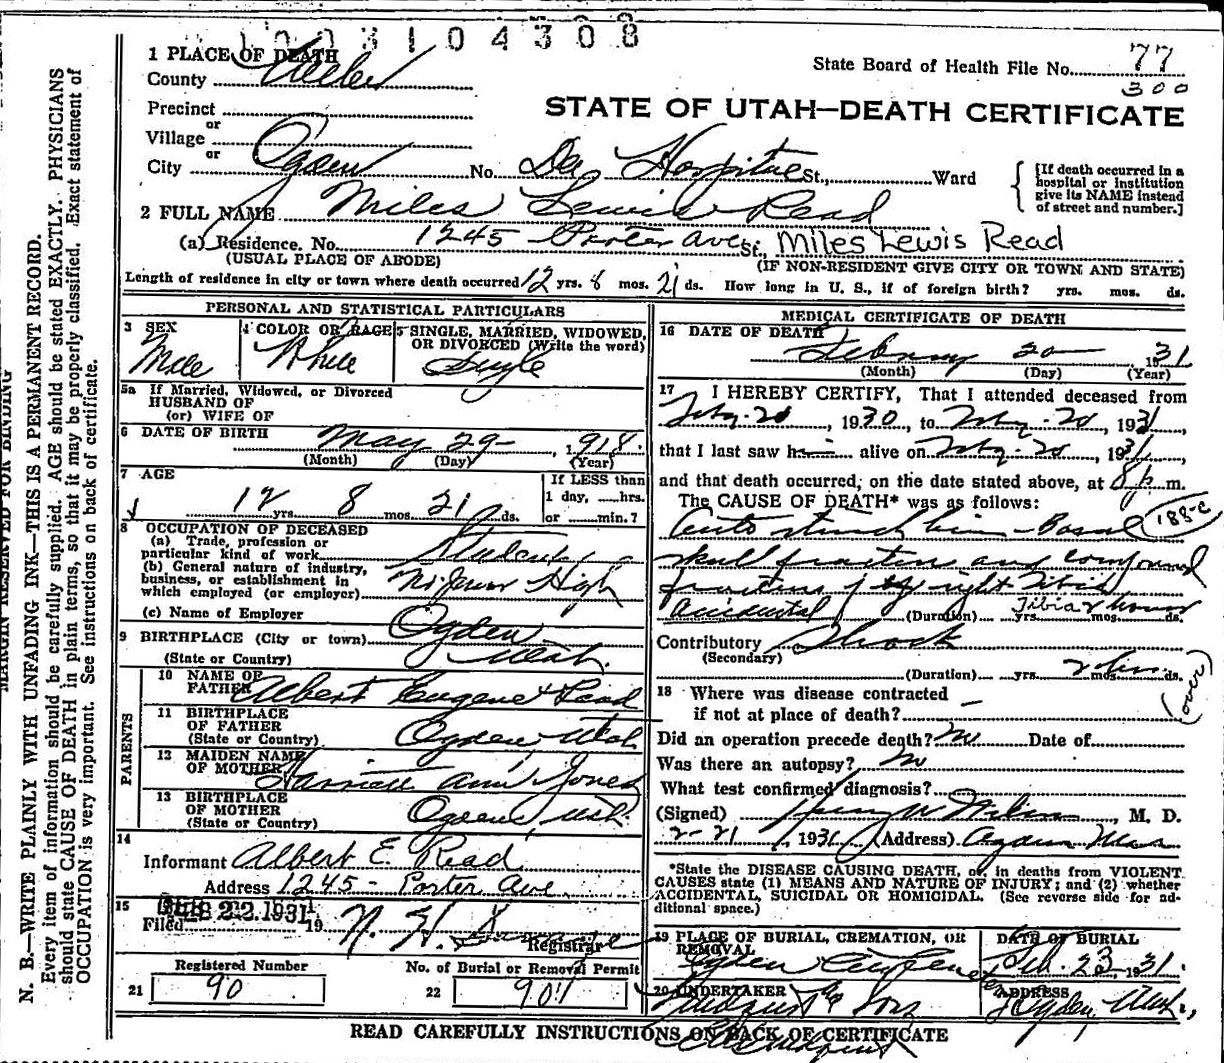 1003104308
1 PLACE OF DEATH
County Weber
State Board of Health File No. 77
300
Precinct
or
Village
or
STATE OF UTAH—DEATH CERTIFICATE
City Ogden No. Dee Hospital St., Ward
[If death occurred in a hospital or institution give its NAME instead of street and number.]
2 FULL NAME Miles Lewis Read
(a) Residence. No. 1245 Porter Ave St. Miles Lewis Read
(USUAL PLACE OF ABODE) (IF NON-RESIDENT GIVE CITY OR TOWN AND STATE)
Length of residence in city or town where death occurred 12 yrs. 8 mos. 21 ds. How long in U. S., if of foreign birth? yrs. mos. ds.
PERSONAL AND STATISTICAL PARTICULARS
3 SEX
Male
4 COLOR OR RACE
White
5 SINGLE, MARRIED, WIDOWED, OR DIVORCED (Write the word)
Single
5a If Married, Widowed, or Divorced
HUSBAND OF
(or) WIFE OF
6 DATE OF BIRTH May 29- , 1918.
(Month) (Day) (Year)
7 AGE
12 yrs 8 mos. 21 ds.
If LESS than
1 day, hrs.
or min.?
8 OCCUPATION OF DECEASED
(a) Trade, profession or
particular kind of work Student
(b) General nature of industry,
business, or establishment in
which employed (or employer) High
(c) Name of Employer
9 BIRTHPLACE (City or town) Ogden
(State or Country) Utah.
PARENTS
10 NAME OF
FATHER Albert Eugene Read
11 BIRTHPLACE
OF FATHER
(State or Country) Ogden, Utah
12 MAIDEN NAME
OF MOTHER Harriett Ann Jones
13 BIRTHPLACE
OF MOTHER
(State or Country) Ogden, Utah.
14
Informant Albert E. Read
Address 1245 - Porter Ave.
15
Filed FEB 22 1931 19
N. H. Registrar
Registered Number
21 90
No. of Burial or Removal Permit
22 901
MEDICAL CERTIFICATE OF DEATH
16 DATE OF DEATH
February 20 1931
(Month) (Day) (Year)
17 I HEREBY CERTIFY, That I attended deceased from
Feby-20, 1930, to Feby-20, 1931,
that I last saw him alive on Feby-20, 1931,
and that death occurred, on the date stated above, at 8 p. m.
The CAUSE OF DEATH* was as follows:
Auto struck him - Basal
skull fracture and compound
fracture of the right Tibia
accidental (Duration) yrs. mos. ds.
Tibia 2 hours
Contributory Shock
(Secondary)
(Duration) yrs. 2 hrs. mos. ds.
(over)
18 Where was disease contracted
if not at place of death? -
Did an operation precede death? No Date of
Was there an autopsy? No
What test confirmed diagnosis?
(Signed) , M. D.
2-21, 1931 (Address) Ogden
*State the DISEASE CAUSING DEATH, or, in deaths from VIOLENT
CAUSES state (1) MEANS AND NATURE OF INJURY; and (2) whether
ACCIDENTAL, SUICIDAL OR HOMICIDAL. (See reverse side for ad-
ditional space.)
19 PLACE OF BURIAL, CREMATION, OR
REMOVAL
Ogden Cemetery
DATE OF BURIAL
Feb. 23, 1931.
20 UNDERTAKER
& Sons
ADDRESS
Ogden, Utah.,
READ CAREFULLY INSTRUCTIONS ON BACK OF CERTIFICATE
MARGIN RESERVED FOR BINDING
N. B.—WRITE PLAINLY WITH UNFADING INK—THIS IS A PERMANENT RECORD.
Every item of information should be carefully supplied. AGE should be stated EXACTLY. PHYSICIANS
should state CAUSE OF DEATH in plain terms, so that it may be properly classified. Exact statement of
OCCUPATION is very important. See instructions on back of certificate.